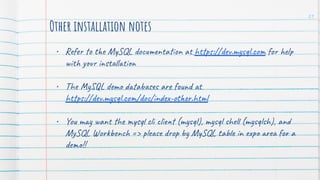 27
OTHER INSTALLATION NOTES
• Refer to the MySQL documentation at https://dev.mysql.com for help
with your installation
• The MySQL demo databases are found at
https://dev.mysql.com/doc/index-other.html
• You may want the mysql cli client (mysql), mysql shell (mysqlsh), and
MySQL Workbench => please drop by MySQL table in expo area for a
demo!!